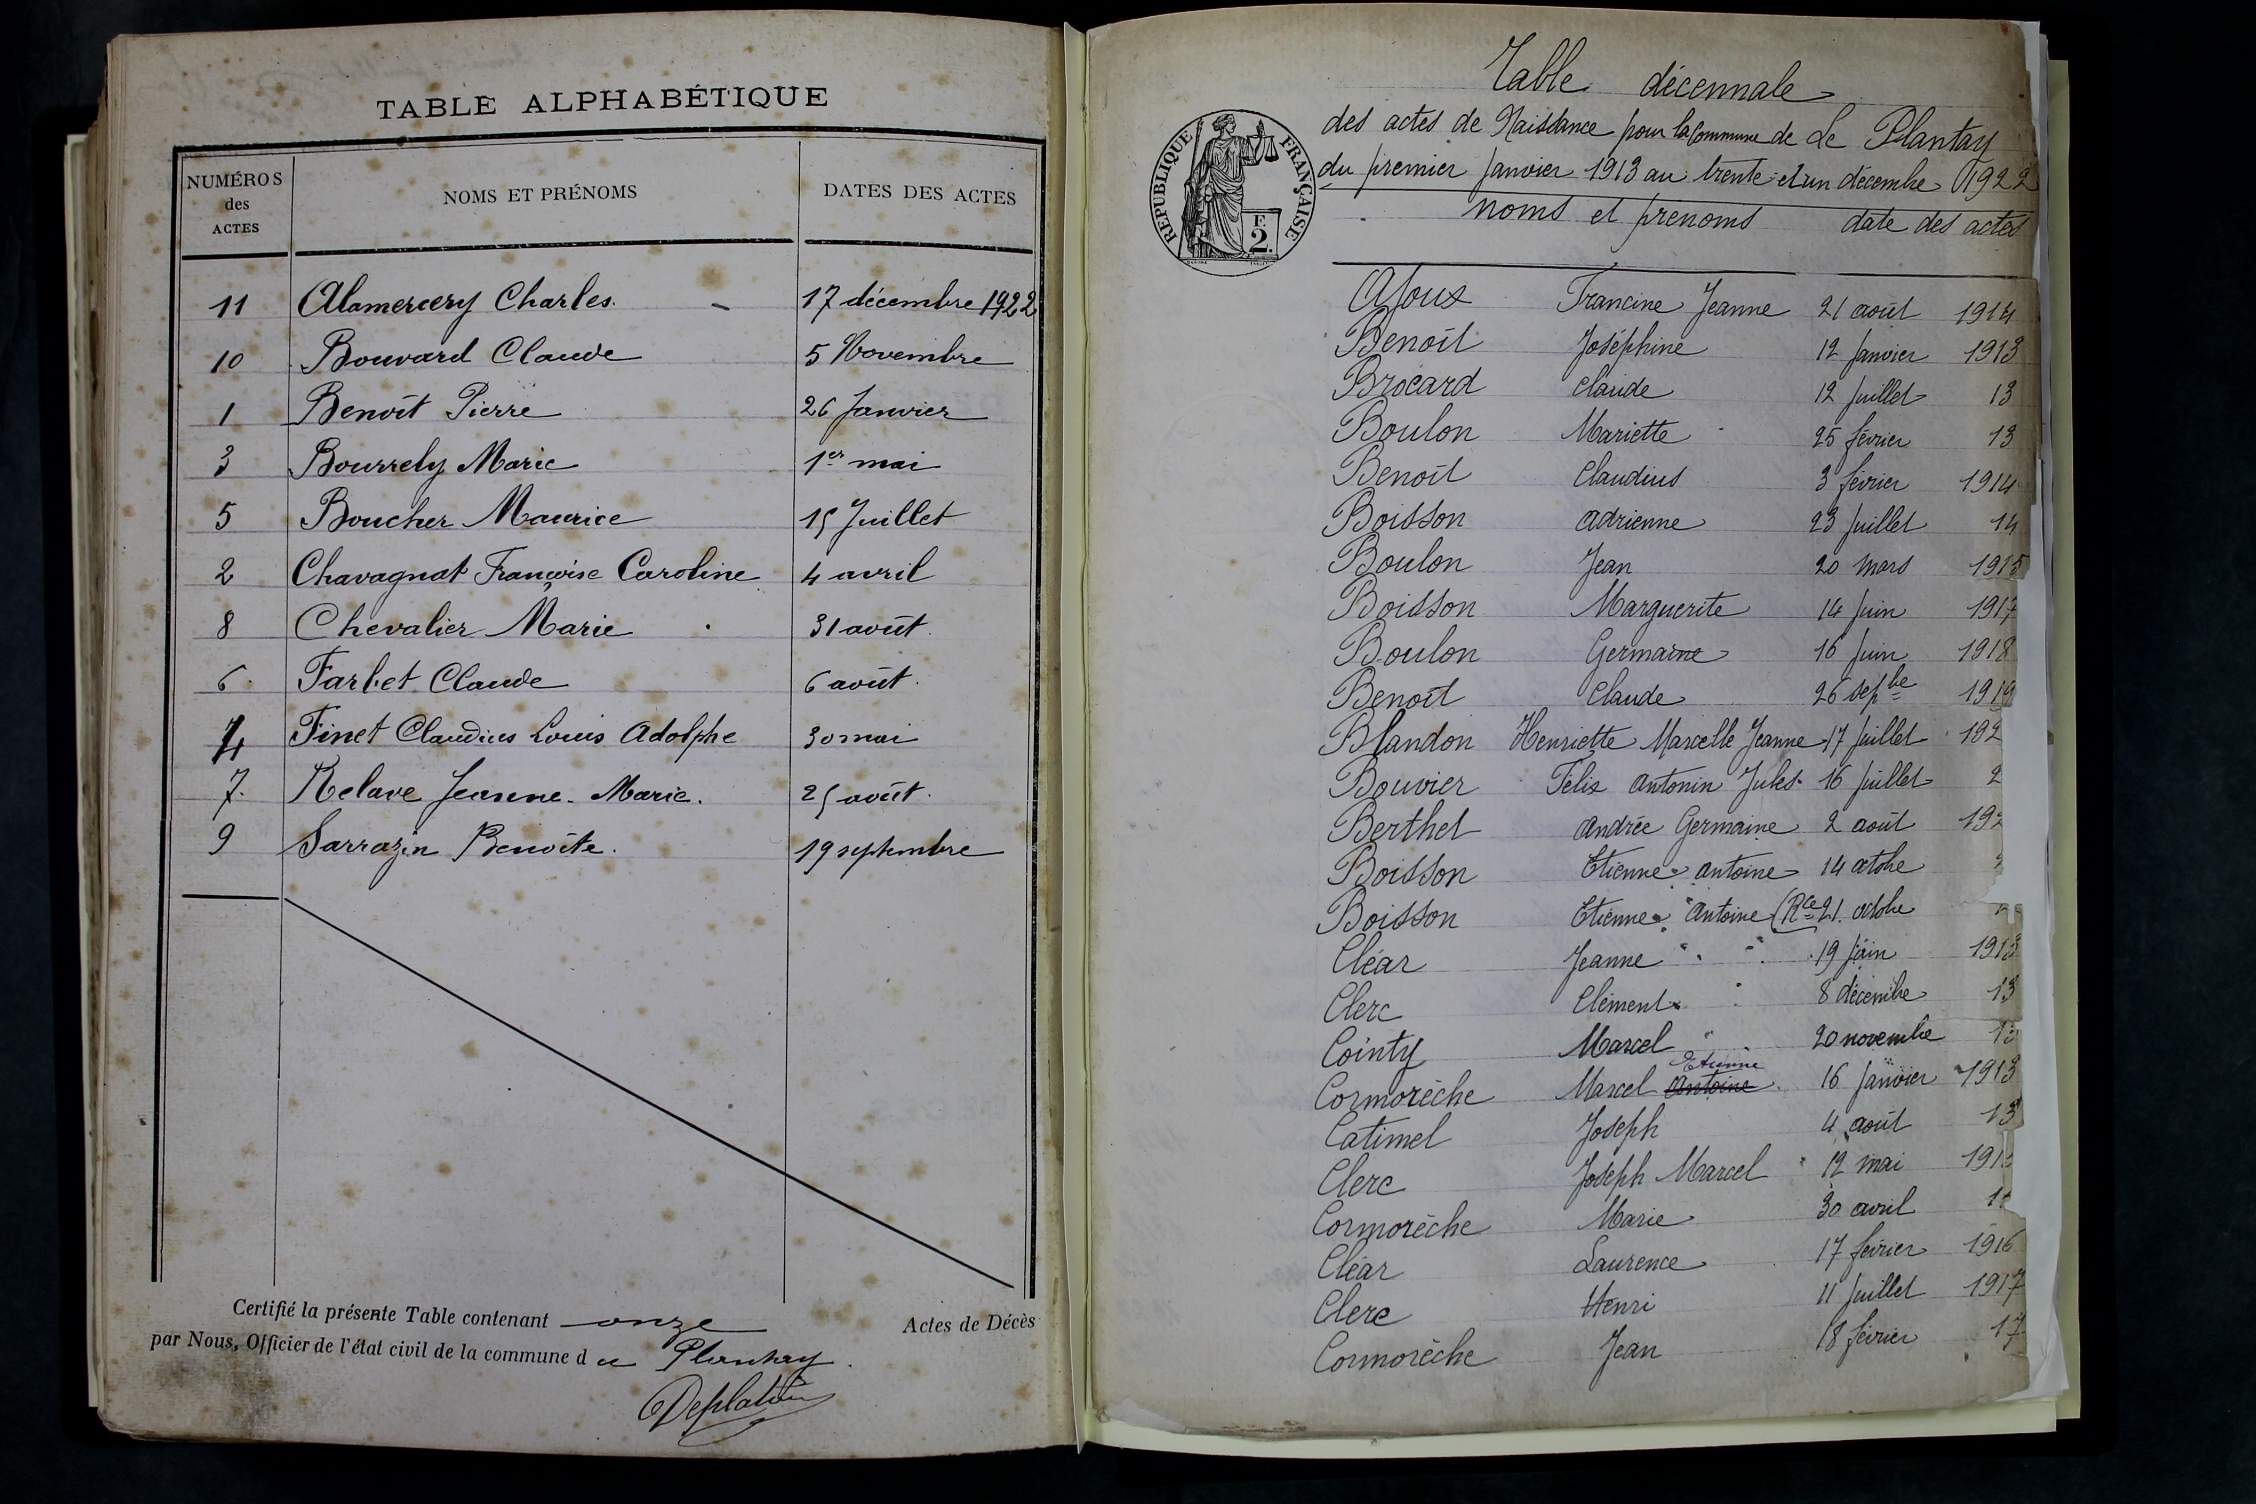 TABLE ALPHABÉTIQUE
NUMÉROS des ACTES NOMS ET PRÉNOMS DATES DES ACTES
11 Alamercery Charles 17 décembre 1922
10 Bouvard Claude 5 Novembre
1 Benoît Pierre 26 Janvier
3 Bourrely Marie 1er mai
5 Boucher Maurice 15 Juillet
2 Chavagnat Françoise Caroline 4 avril
8 Chevalier Marie 31 août
6 Farbet Claude 6 août
4 Finet Claudius Louis Adolphe 30 mai
7 Relave Jeanne Marie 25 août
9 Sarrazin Benoîte 19 septembre
Certifié la présente Table contenant onze Actes de Décès
par Nous, Officier de l'état civil de la commune d u Plantay
RÉPUBLIQUE FRANÇAISE
F
2.
Table décennale
des actes de Naissance pour la Commune de Le Plantay
du premier Janvier 1913 au trente et un décembre 1922
noms et prénoms date des actes
Ajoux Francine Jeanne 21 août 1914
Benoît Joséphine 12 Janvier 1913
Brocard Claude 12 Juillet 13
Boulon Mariette 25 février 13
Benoît Claudius 3 février 1914
Boisson Adrienne 23 Juillet 14
Boulon Jean 20 Mars 1915
Boisson Marguerite 14 Juin 1917
Boulon Germaine 16 Juin 1918
Benoît Claude 26 sepbe
Blandon Henriette Marcelle Jeanne 17 Juillet 192
Bouvier Félix Antonin Jules 16 Juillet 2
Berthet Andrée Germaine 2 août 192
Boisson Etienne Antoine 14 octobe
Boisson Etienne Antoine (Rce 21 octobe
Cléar Jeanne 19 Juin 1913
Clerc Clément 8 décembre 13
Cointy Marcel 20 novembre 13
Cormorèche Marcel Antoine Etienne 16 Janvier 1913
Catimel Joseph 4 août 13
Clerc Joseph Marcel 12 mai 191
Cormorèche Marie 30 avril 1
Cléar Laurence 17 février 1916
Clerc Henri 11 Juillet 1917
Cormorèche Jean 18 février 17